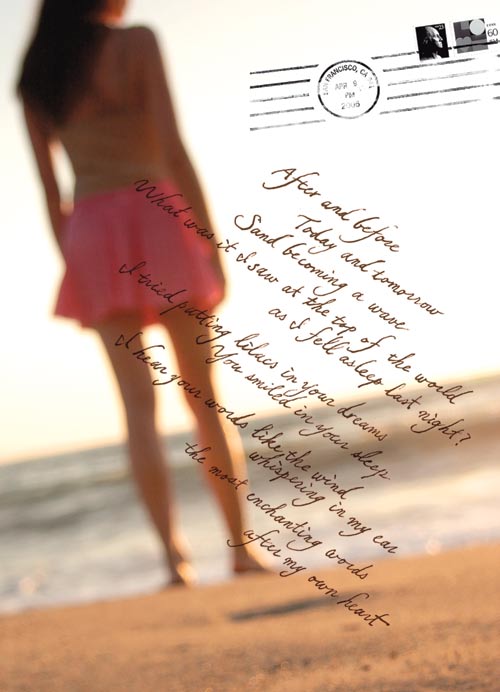 SAN FRANCISCO, CA
APR 9
PM
2006
60
After and before
Today and tomorrow
Sand becoming a wave
What was it I saw at the top of the world
as I fell asleep last night?
I tried putting lilacs in your dreams
You smiled in your sleep
I hear your words like the wind
whispering in my ear
the most enchanting words
after my own heart